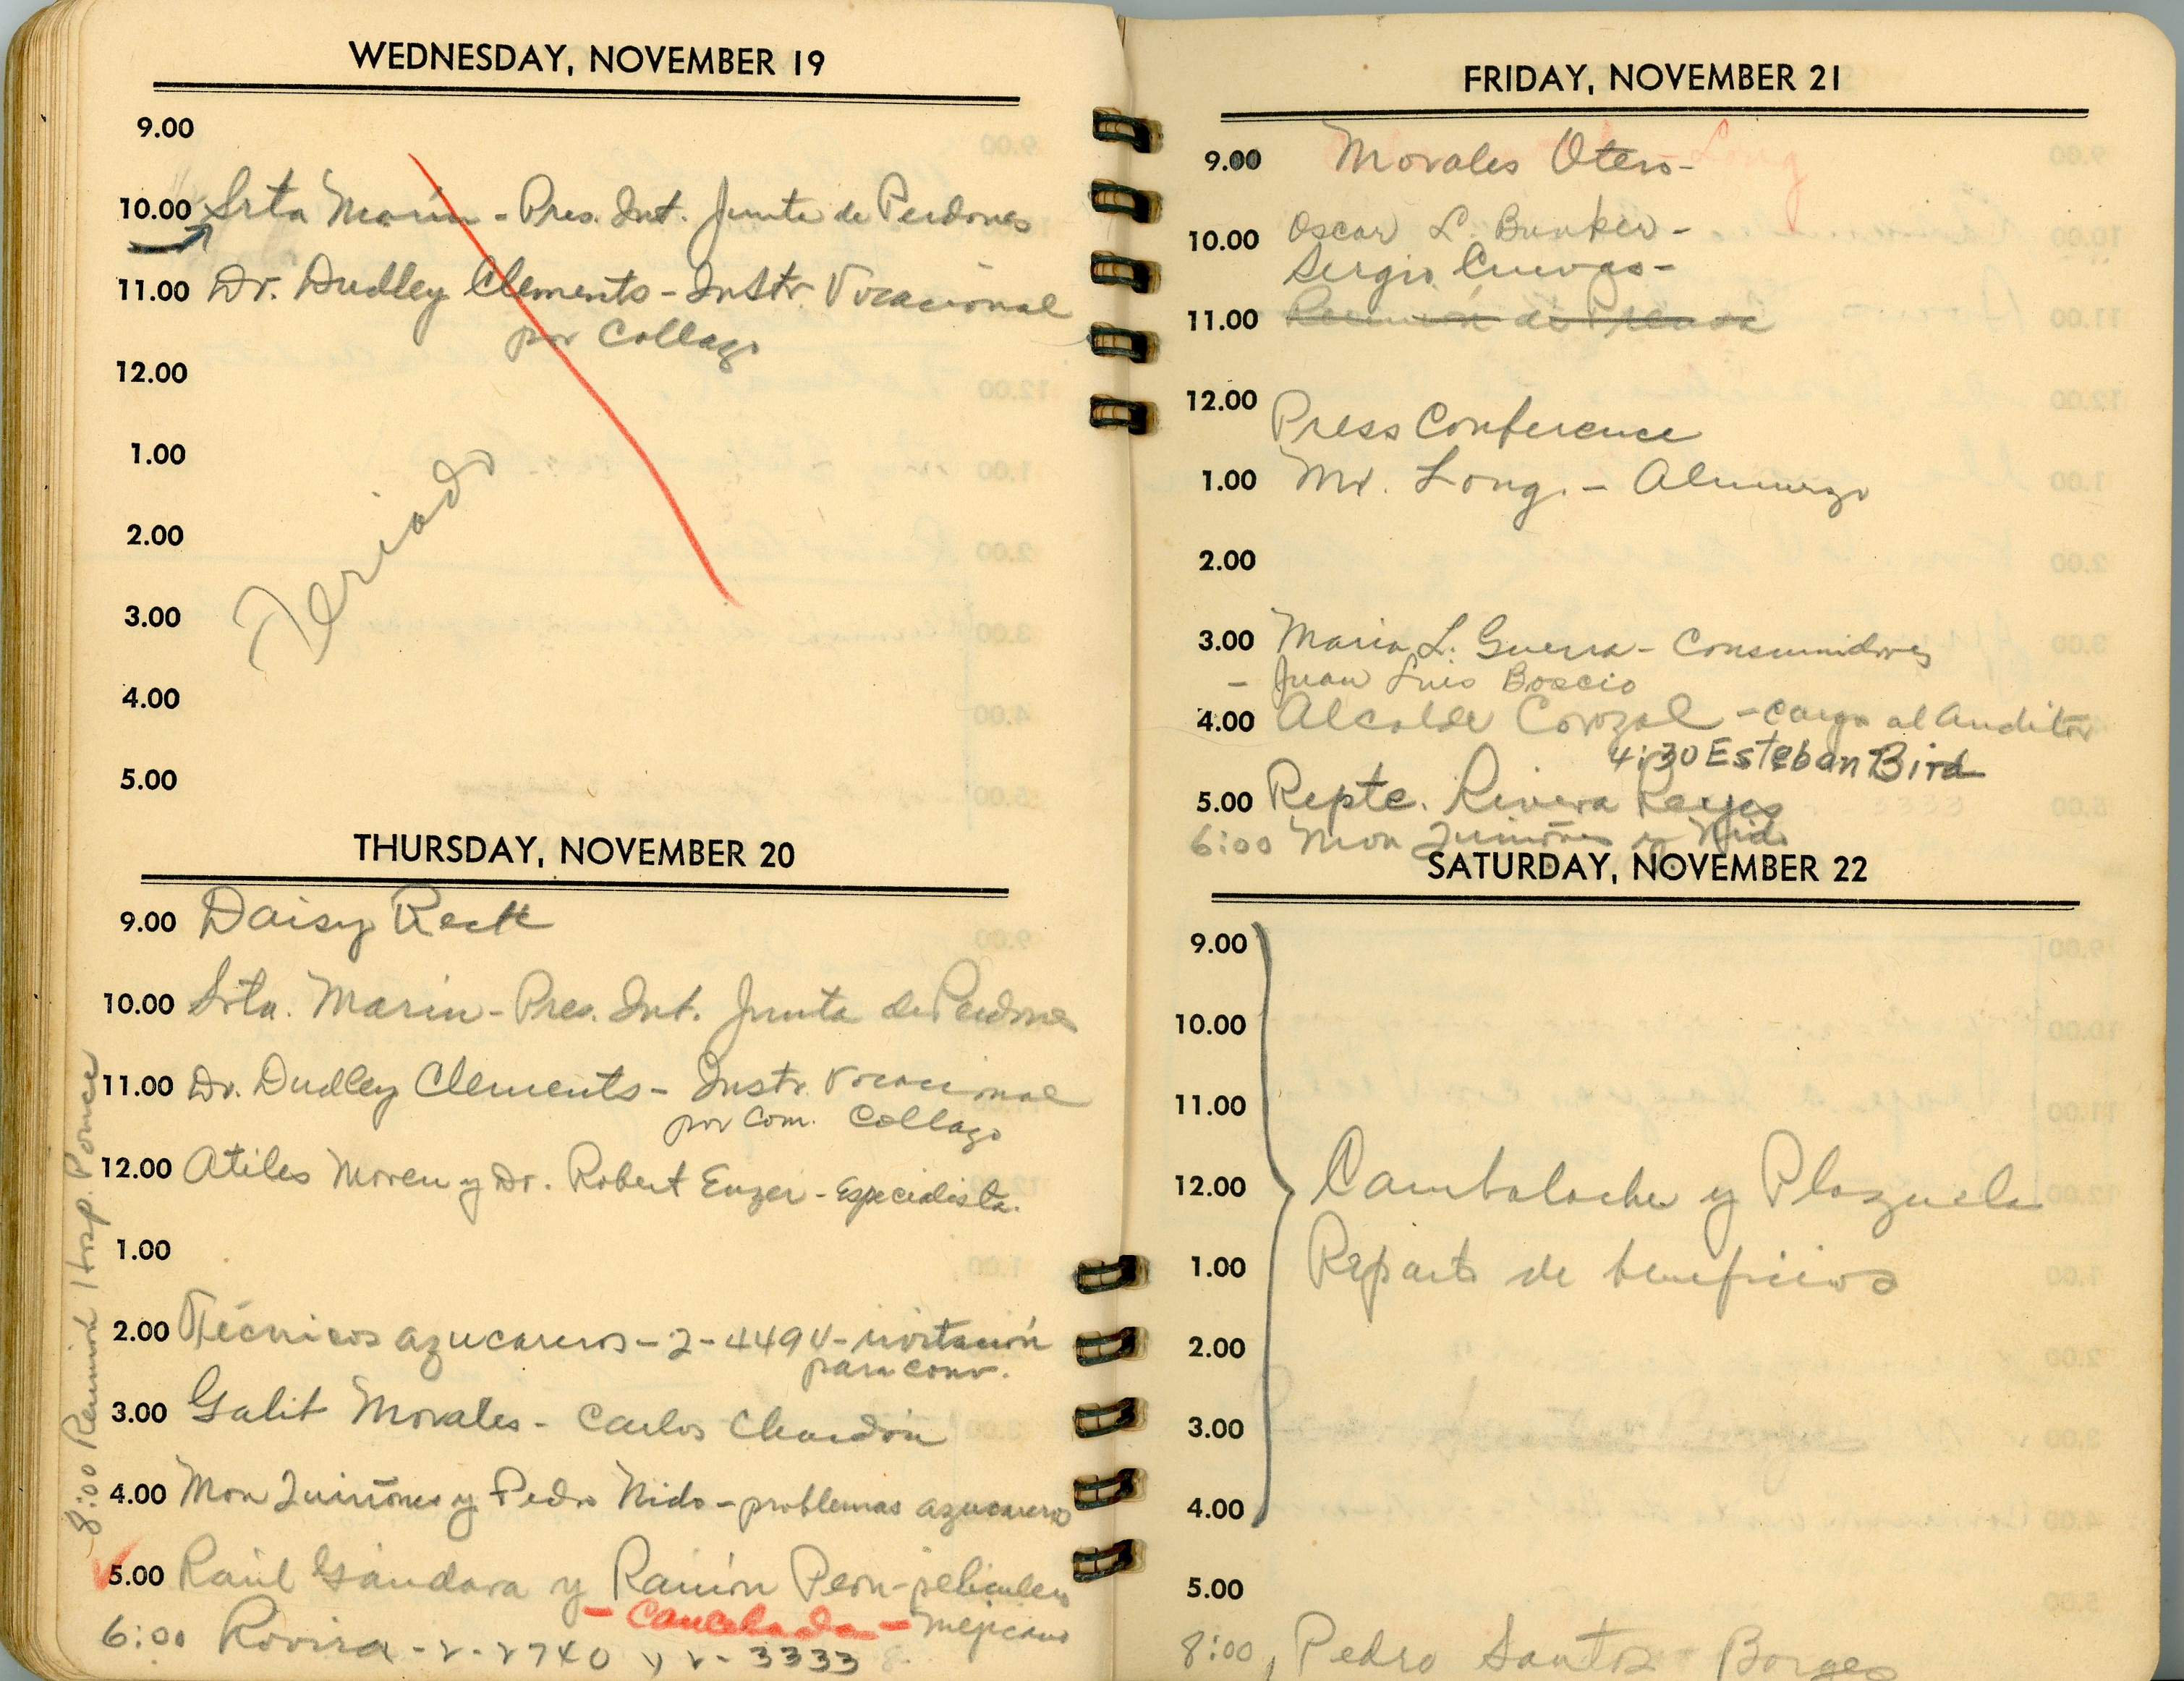 WEDNESDAY, NOVEMBER 19
9.00
10.00 Srta Marín - Pres. Int. Junta de Perdones
11.00 Dr. Dudley Clements - Instr. Vocacional
por Collazo
12.00
1.00
2.00
Feriado
3.00
4.00
5.00
THURSDAY, NOVEMBER 20
9.00 Daisy Reck
10.00 Srta. Marín - Pres. Int. Junta de Perdones
11.00 Dr. Dudley Clements - Instr. Vocacional
por Com. Collazo
12.00 Atiles Moreu y Dr. Robert - Especialista.
1.00
2.00 Técnicos azucareros - 2-4494 - invitación
para conv.
3.00 Galit Morales - Carlos Chardón
4.00 Mon Quiñones y Pedro Nido - problemas azucareros
5.00 Raúl Gándara y Ramón Peon - películas
- Cancelada - mejicano
6:00 Rovira - 2-2740 y 2-3333
8:00 Reunión Hosp. Ponce
FRIDAY, NOVEMBER 21
9.00 Morales Otero -
Oscar L. Bunker -
10.00
Sergio Cuevas -
11.00 Reunión de Prensa
12.00
Press Conference
1.00 Mr. Long. - Almuerzo
2.00
3.00 Maria L. Guerra - Consumidores
- Juan Luis Boscio
4.00 Alcalde Corozal - cargo al Auditor
4:30 Esteban Bird
5.00 Repte. Rivera Reyes
6:00 Mon Quiñones y Nido
SATURDAY, NOVEMBER 22
9.00
10.00
11.00
12.00 Cambalache y Plazuela
1.00 Reparto de beneficios
2.00
3.00
4.00
5.00
8:00, Pedro Santos Borges